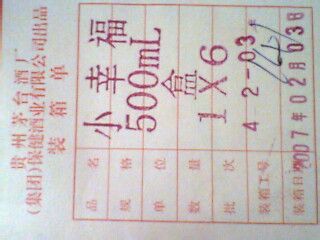 贵州茅台酒厂
(集团)保健酒业有限公司出品
装箱单
品名 小幸福
规格 500mL
单位 盒
数量 1X6
批次 4 2-03
装箱工号
装箱日期 2007年02月03日